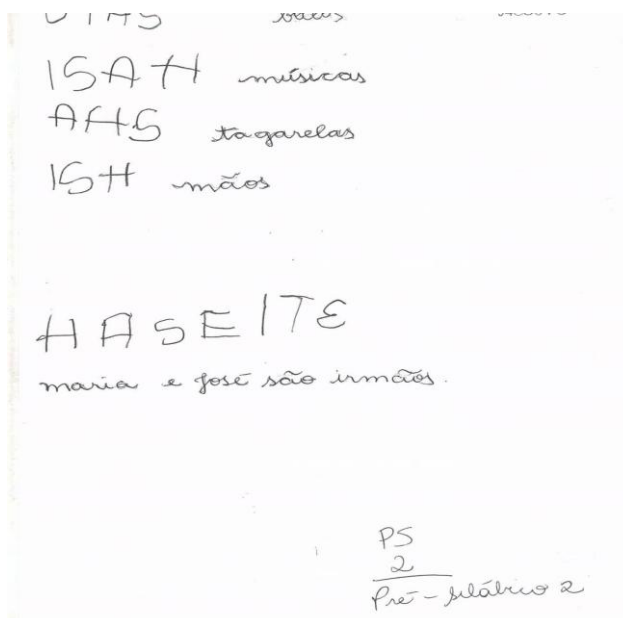 ISAH músicas
AHS tagarelas
ISH mãos
HASEITE
maria e josé são irmãos.
PS
2
Pré-silábico 2